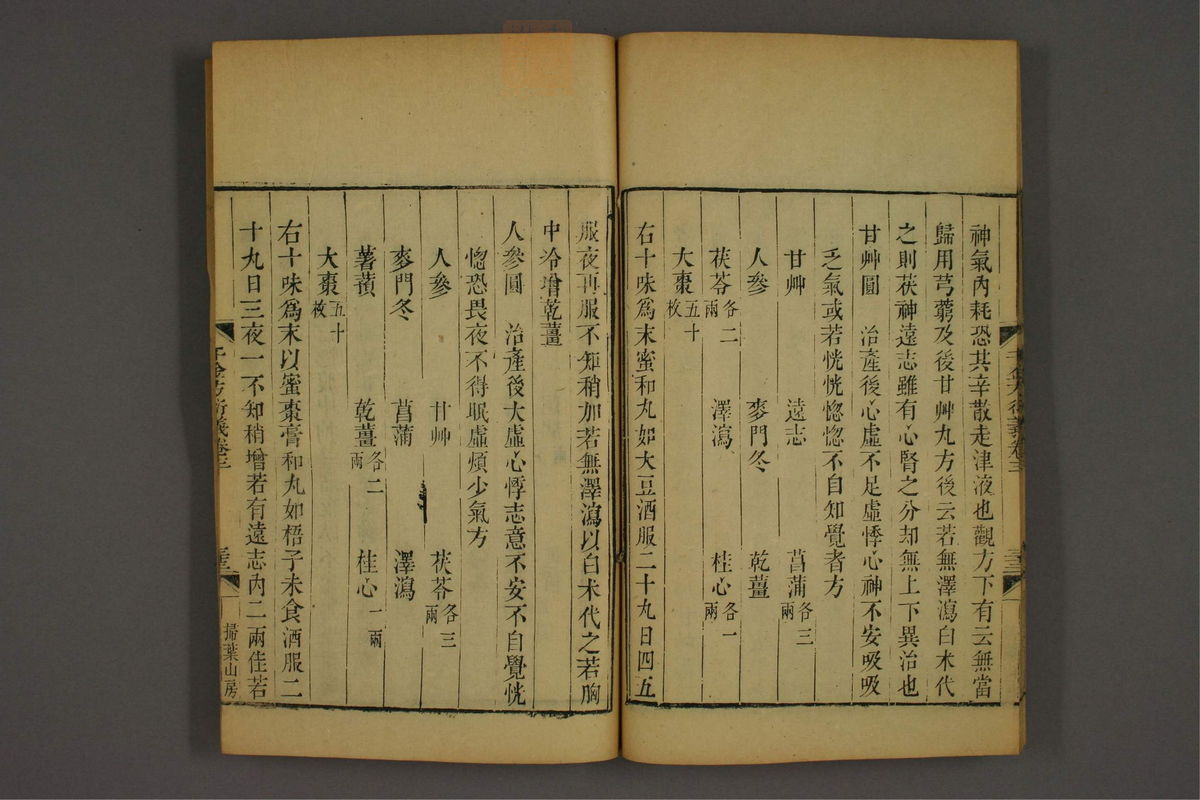 神氣內耗恐其辛散走津液也觀方下有云無當
歸用芎藭及後甘艸丸方後云若無澤瀉白朮代
之則茯神遠志雖有心腎之分却無上下異治也
甘艸圓　治產後心虛不足虛悸心神不安吸吸
乏氣或若恍恍惚惚不自知覺者方
甘艸　遠志　菖蒲各三兩
人參　麥門冬　乾薑
茯苓各二兩　澤瀉　桂心各一兩
大棗五十枚
右十味爲末蜜和丸如大豆酒服二十九日四五
服夜再服不知稍加若無澤瀉以白朮代之若胸
中冷增乾薑
人參圓　治產後大虛心悸志意不安不自覺恍
惚恐畏夜不得眠虛煩少氣方
人參　甘艸　茯苓各三兩
麥門冬　菖蒲　澤瀉
薯蕷　乾薑各二兩　桂心一兩
大棗五十枚
右十味爲末以蜜棗膏和丸如梧子未食酒服二
十九日三夜一不知稍增若有遠志內二兩佳若
千金方衍義卷三
掃葉山房